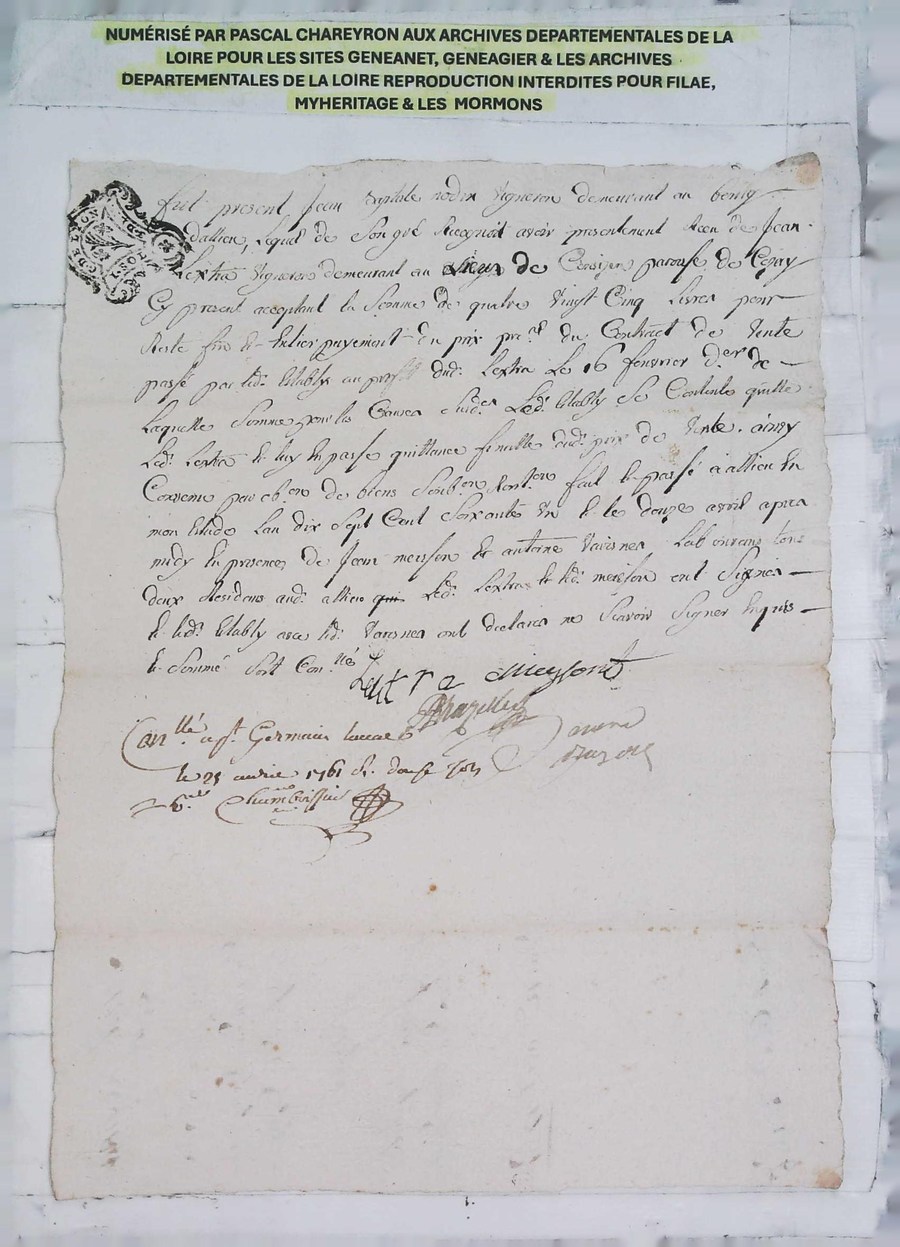 NUMÉRISÉ PAR PASCAL CHAREYRON AUX ARCHIVES DEPARTEMENTALES DE LA
LOIRE POUR LES SITES GENEANET, GENEAGIER & LES ARCHIVES
DEPARTEMENTALES DE LA LOIRE REPRODUCTION INTERDITES POUR FILAE,
MYHERITAGE & LES MORMONS
fut present Jean vigneron demeurant au bourg
dallieu, lequel de son gré Recognoit avoir presentement Receu de Jean
Lextra vigneron demeurant au Lieux de parouse de Cezay
Cy present acceptant la somme de quatre vingt Cinq Livres pour
Reste fin et Entier payement du prix du Contract de vente
passé par led. Establÿ au proffit dud. Lextra Le 16 fevvrier der de
Laquelle somme pour les Causes Led. Establÿ se Contente quitte
Led. Lextra et luy en passe quittance finalle dud. prix de vente. ainsy
Convenu par de biens fait et passé à allieu En
mon Etude Lan dix sept Cent soixante un et le douze avril apres
midy En presence de Jean meisson et antoine Labourans tous
deux Residens aud. allieu Led. Lextra et led. meisson ont signés
et led. Establÿ avec led. ont declaires ne scavoir signer Enquis
et sommé soit Con.llé
Lextra Meysont
Con.llé a st Germain Laval
le 25 avril 1761 R. douse sols